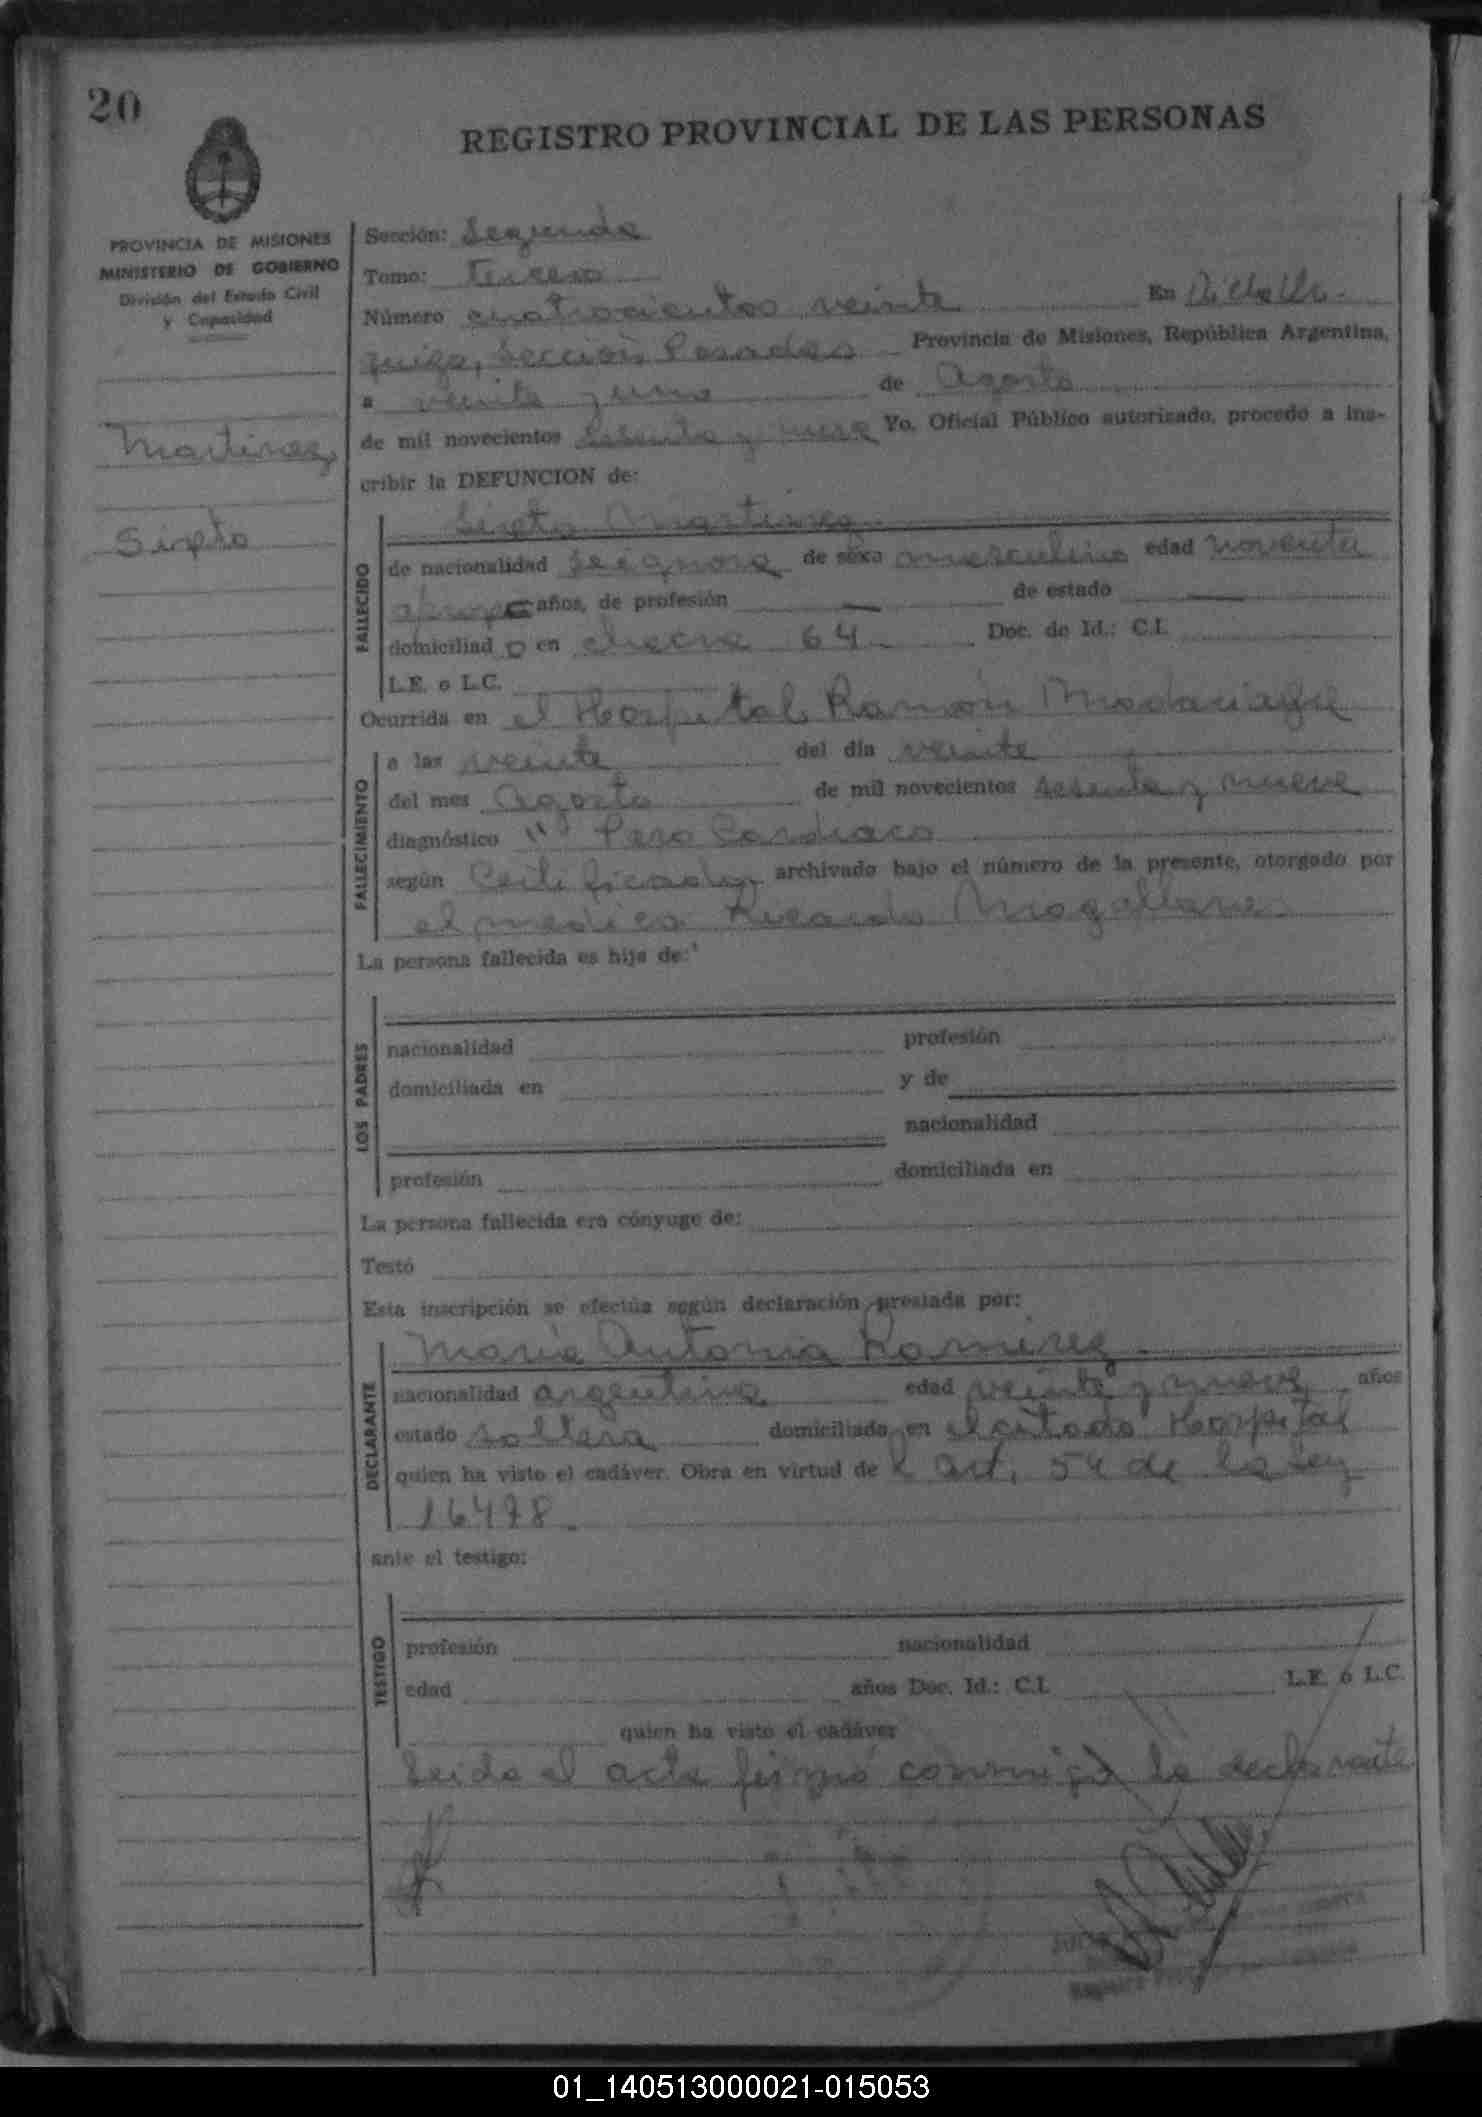 20
REGISTRO PROVINCIAL DE LAS PERSONAS
PROVINCIA DE MISIONES
MINISTERIO DE GOBIERNO
División del Estado Civil
y Capacidad
Martinez
Sixto
Sección: Segunda
Tomo: Tercero
Número cuatrocientos veinte En Villa Ur-
quiza, Sección Posadas Provincia de Misiones, República Argentina,
a veinte y uno de Agosto
de mil novecientos sesenta y nueve Yo, Oficial Público autorizado, procedo a ins-
cribir la DEFUNCION de:
Sixto Martinez
FALLECIDO
de nacionalidad se ignora de sexo masculino edad noventa
aprox años, de profesión — de estado —
domiciliad o en chacra 64 Doc. de Id.: C.I.
L.E. o L.C.
Ocurrida en el Hospital Ramón Madariaga
FALLECIMIENTO
a las veinte del día veinte
del mes Agosto de mil novecientos sesenta y nueve
diagnóstico " Paro Cardiaco
según Certificado archivado bajo el número de la presente, otorgado por
el medico Ricardo Magallanes
La persona fallecida es hija de:
LOS PADRES
nacionalidad profesión
domiciliada en y de
nacionalidad
profesión domiciliada en
La persona fallecida era cónyuge de:
Testó
Esta inscripción se efectúa según declaración prestada por:
DECLARANTE
Maria Antonia Ramirez
nacionalidad argentina edad veinte y nueve años
estado soltera domiciliada en el citado Hospital
quien ha visto el cadáver. Obra en virtud de l art. 54 de la Ley
16478.
ante el testigo:
TESTIGO
profesión nacionalidad
edad años Doc. Id.: C.I. L.E. ó L.C.
quien ha visto el cadáver
Leida el acta firmó conmigo la declarante
01_140513000021-015053